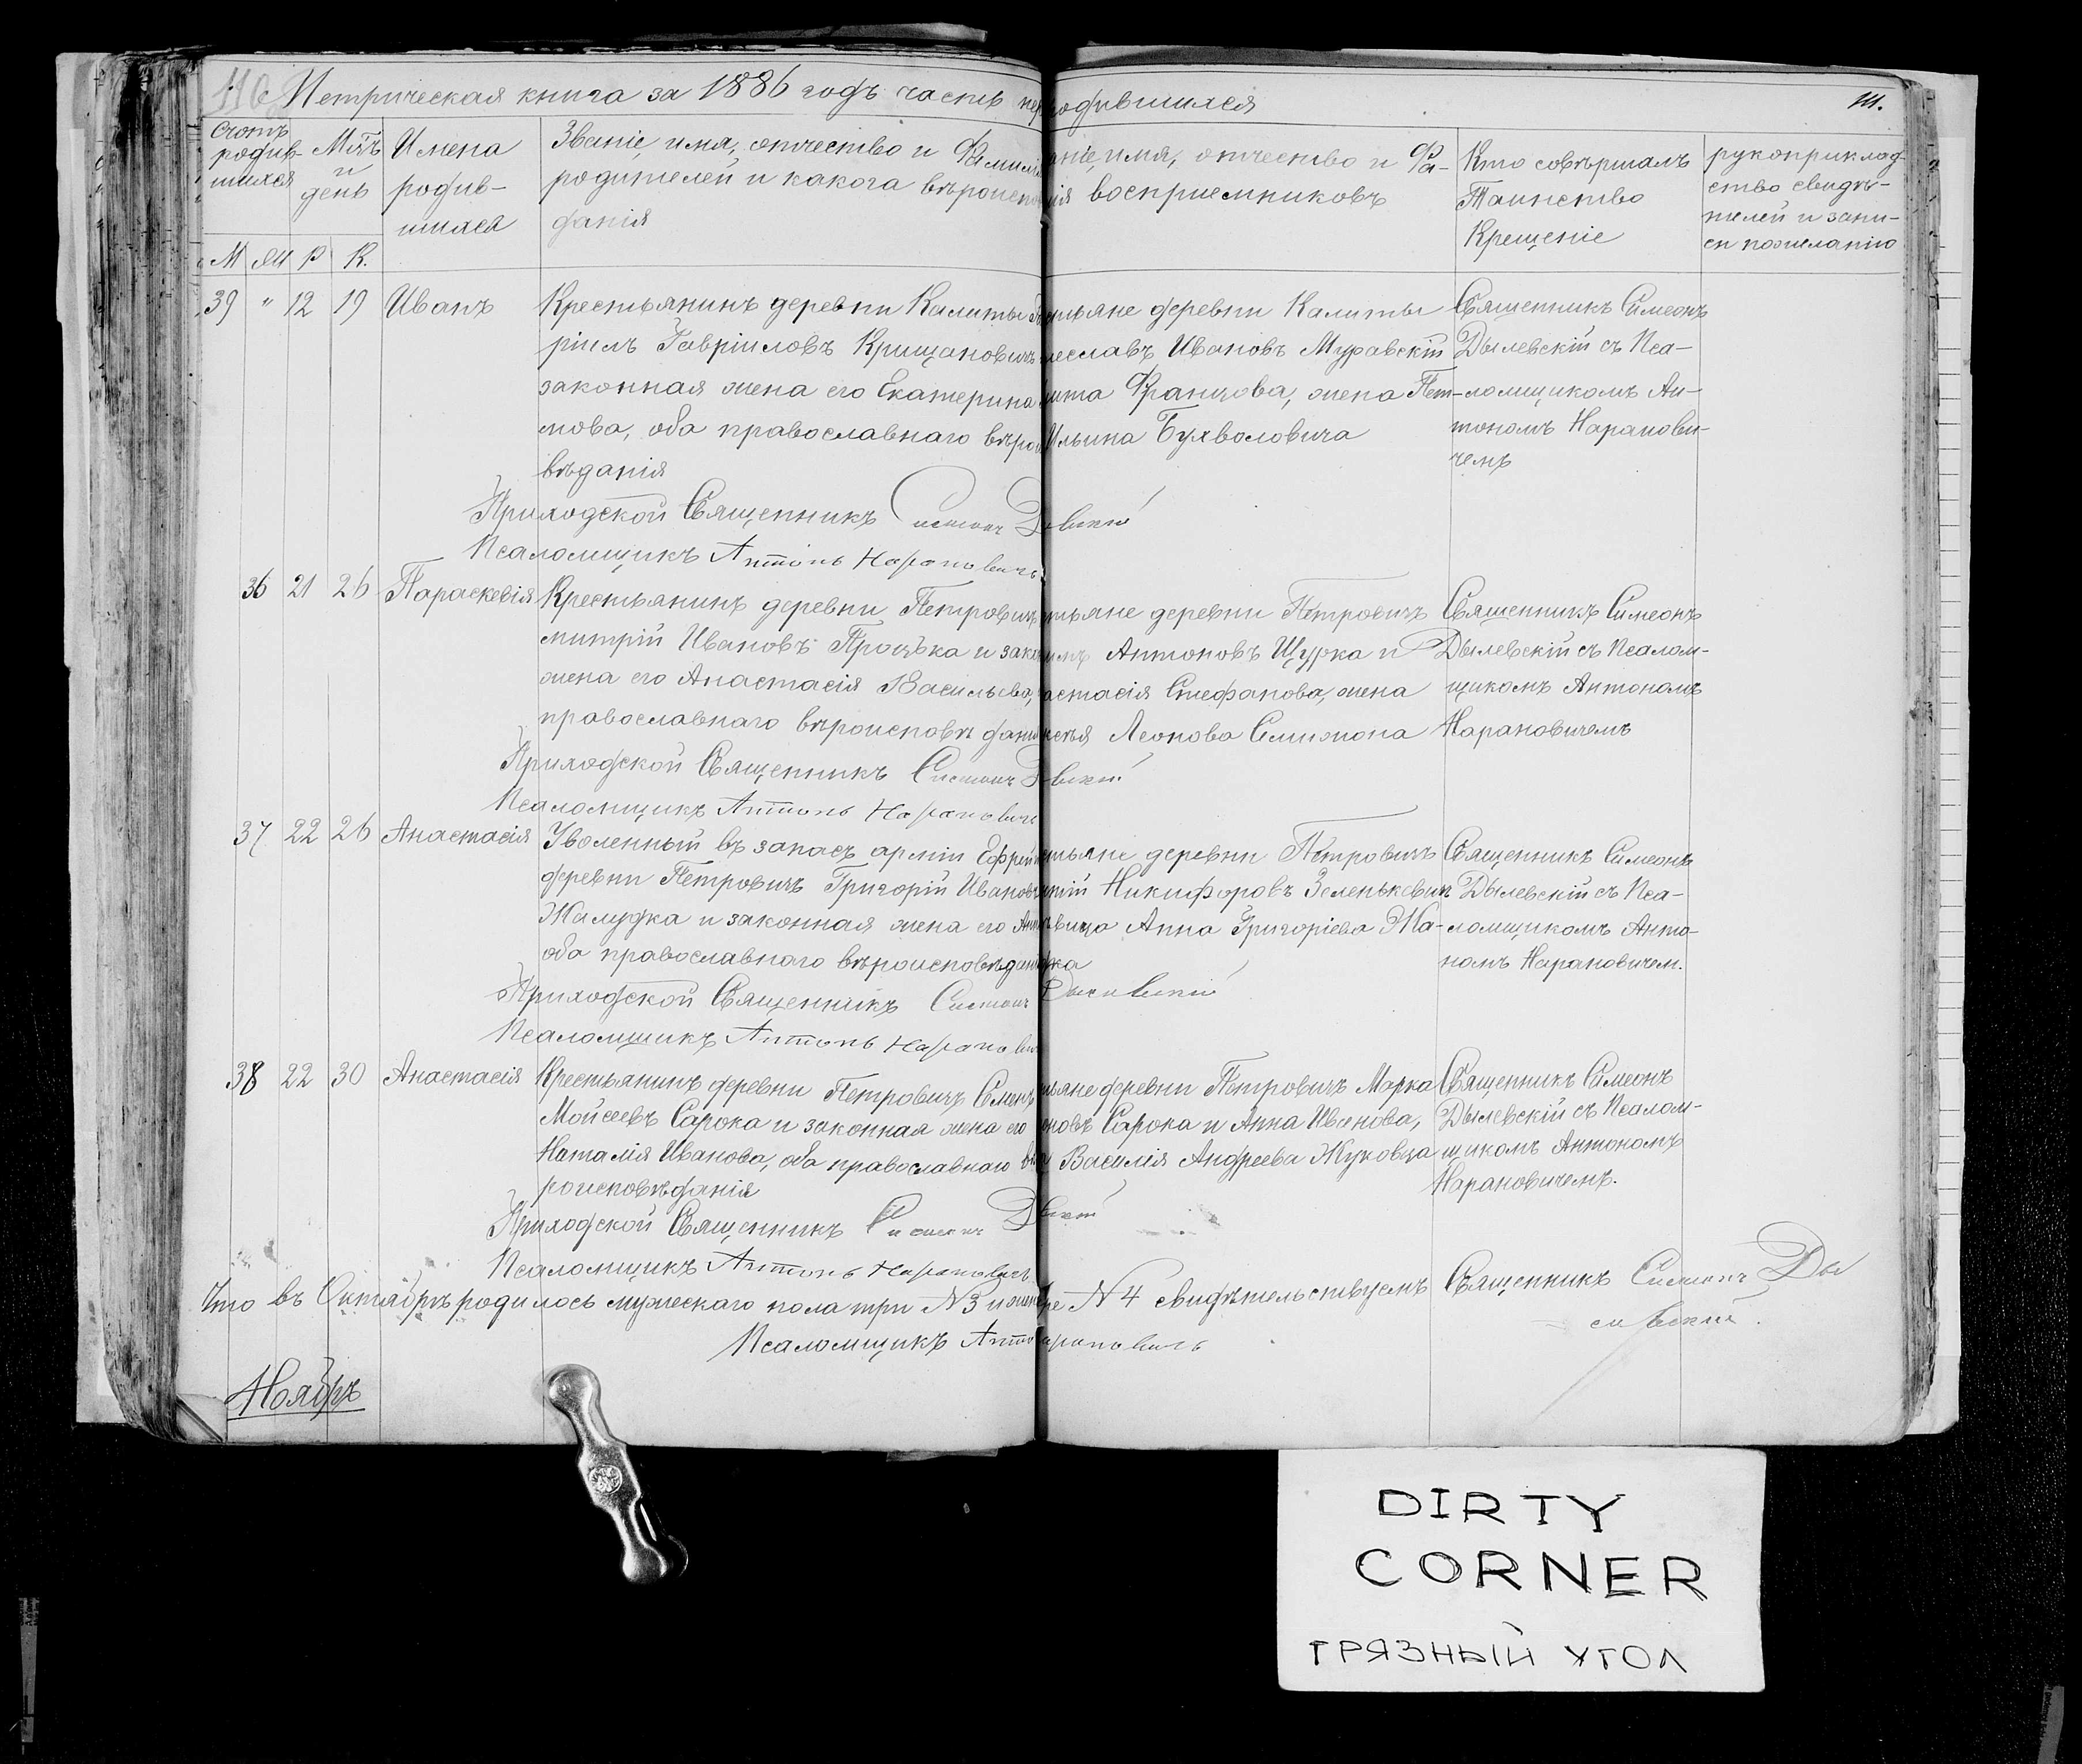 110 Метрическая книга за 1886 годъ часть пер
родившихся
111.
Счотъ родив- шихся
М Ж
Мѣ̄ць и день
Р К.
Имена
родив-
шихся
Званіе, имя, отчество и Фамилія
родителей и какога вѣроиспо
данія
аніе, имя, отчество и Фа-
лія восприемниковъ
Кто совѣршалъ
Таинство
Крещеніе
рукоприклад-
ство свидѣ-
телей и запи-
си пожеланію
39 " 12 19 Иванъ
Крестьянинъ деревни Калиты
ріилъ Гавріиловъ Крищановичъ
законная жена его Екатерина
мова, оба православнаго вѣрои
вѣданія
стьяне деревни Калиты
чеславъ Ивановъ Муравскій
Францова, жена Пет-
Ильина Бухволовича
Священникъ Симеонъ
Дылевскій съ Пса-
ломщикомъ Ан-
тономъ Наранови-
чемъ
Приходской Священникъ Симеонъ Д вскій
Псаломщикъ Антонъ Нарановичъ
36 21 26 Параскевія
Крестьянинъ деревни Петровичъ
митрій Ивановъ Процька и закон
жена его Анастасія Васильева,
православнаго вѣроисповѣдані
стьяне деревни Петровичъ
Антоновъ Щурка и
астасія Стефанова, жена
Леонова Симмона
Священникъ Симеонъ
Дылевскій съ Псалом-
щикомъ Антономъ
Нарановичемъ
Приходской Священникъ Симеонъ Д вскій
Псаломщикъ Антонъ Нарановичъ
37 22 26 Анастасія
Уволенный въ запасъ арміи Ефрей
деревни Петровичъ Григорій Иванов
Жалудка и законная жена его Ан
оба православнаго вѣроисповѣдан
стьяне деревни Петровичъ
Никифоровъ Зеленькевич
вица Анна Григоріева Жа-
дка
Священникъ Симеонъ
Дылевскій съ Пса-
ломщикомъ Анто-
номъ Нарановичем.
Приходской Священникъ Симеонъ Дылевскій
Псаломщикъ Антонъ Нарановичъ
38 22 30 Анастасія
Крестьянинъ деревни Петровичъ Семенъ
Мойсеевъ Сарока и законная жена его
Наталія Иванова, оба православнаго вѣ
роисповѣданія
стьяне деревни Петровичъ Марка
оновъ Сарока и Анна Иванова,
а Василія Андреева Жуковца
Священникъ Симеонъ
Дылевскій съ Псалом-
щикомъ Антономъ
Нарановичемъ.
Приходской Священникъ Симеонъ Д вскій
Псаломщикъ Антонъ Нарановичъ
Что въ Октябрѣ родилось мужескаго пола три №3 и женс ре №4 свидѣтельствуемъ Священникъ Симеонъ Ды
левскій.
Псаломщикъ Антонъ Нарановичъ
Ноябрь
DIRTY
CORNER
ГРЯЗНЫЙ УГОЛ